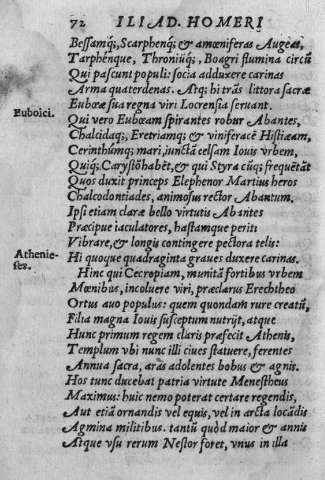 72 ILIAD. HOMERI
Bessamq;, Scarphenq; & amœniferas Augeas,
Tarphénque, Throniúq;, Boagri flumina circū
Qui pascunt populi: socia adduxere carinas
Arma quaterdenas. Atq; hi trās littora sacræ
Eubœæ sua regna viri Locrensia seruant.
Euboici.
Qui vero Eubœam spirantes robur Abantes,
Chalcidaq;, Eretriamq; & viniferacē Histiæam,
Cerinthúmq; mari, iunctā celsam Iouis vrbem,
Quiq; Carystō habēt, & qui Styra cūq; frequētāt
Quos duxit princeps Elephenor Martius heros
Chalcodontiades, animosus rector Abantum.
Ipsi etiam claræ bello virtutis Abantes
Præcipue iaculatores, hastamque periti
Vibrare, & longis contingere pectora telis:
Athenie-
ses.
Hi quoque quadraginta graues duxere carinas.
Hinc qui Cecropiam, munitā fortibus vrbem
Mœnibus, incoluere viri, præclarus Erechtheo
Ortus auo populus: quem quondam rure creatū,
Filia magna Iouis susceptum nutrijt, atque
Hunc primum regem claris præfecit Athenis,
Templum vbi nunc illi ciues statuere, ferentes
Annua sacra, aras adolentes bobus & agnis.
Hos tunc ducebat patria virtute Menestheus
Maximus: huic nemo poterat certare regendis,
Aut etiā ornandis vel equis, vel in arcta locādis
Agmina militibus. tantū quòd maior & annis
Atque vsu rerum Nestor foret, vnus in illa